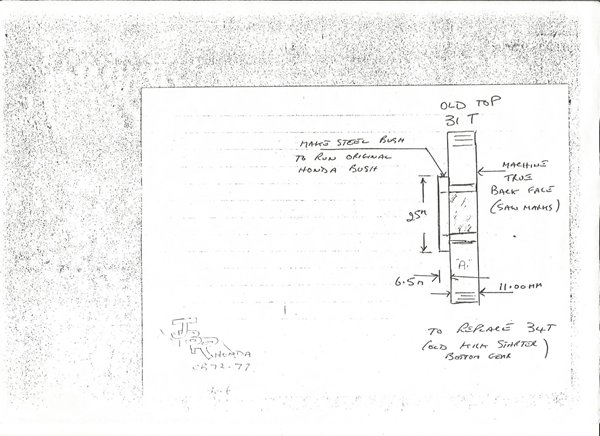 OLD TOP
31 T
MAKE STEEL BUSH
TO RUN ORIGINAL
HONDA BUSH
MACHINE
TRUE
BACK FACE
(SAW MARKS)
25M
"A"
6.5M
11.00MM
TO REPLACE 34T
(OLD KICK STARTER
BOTTOM GEAR)
HONDA
CR72-77